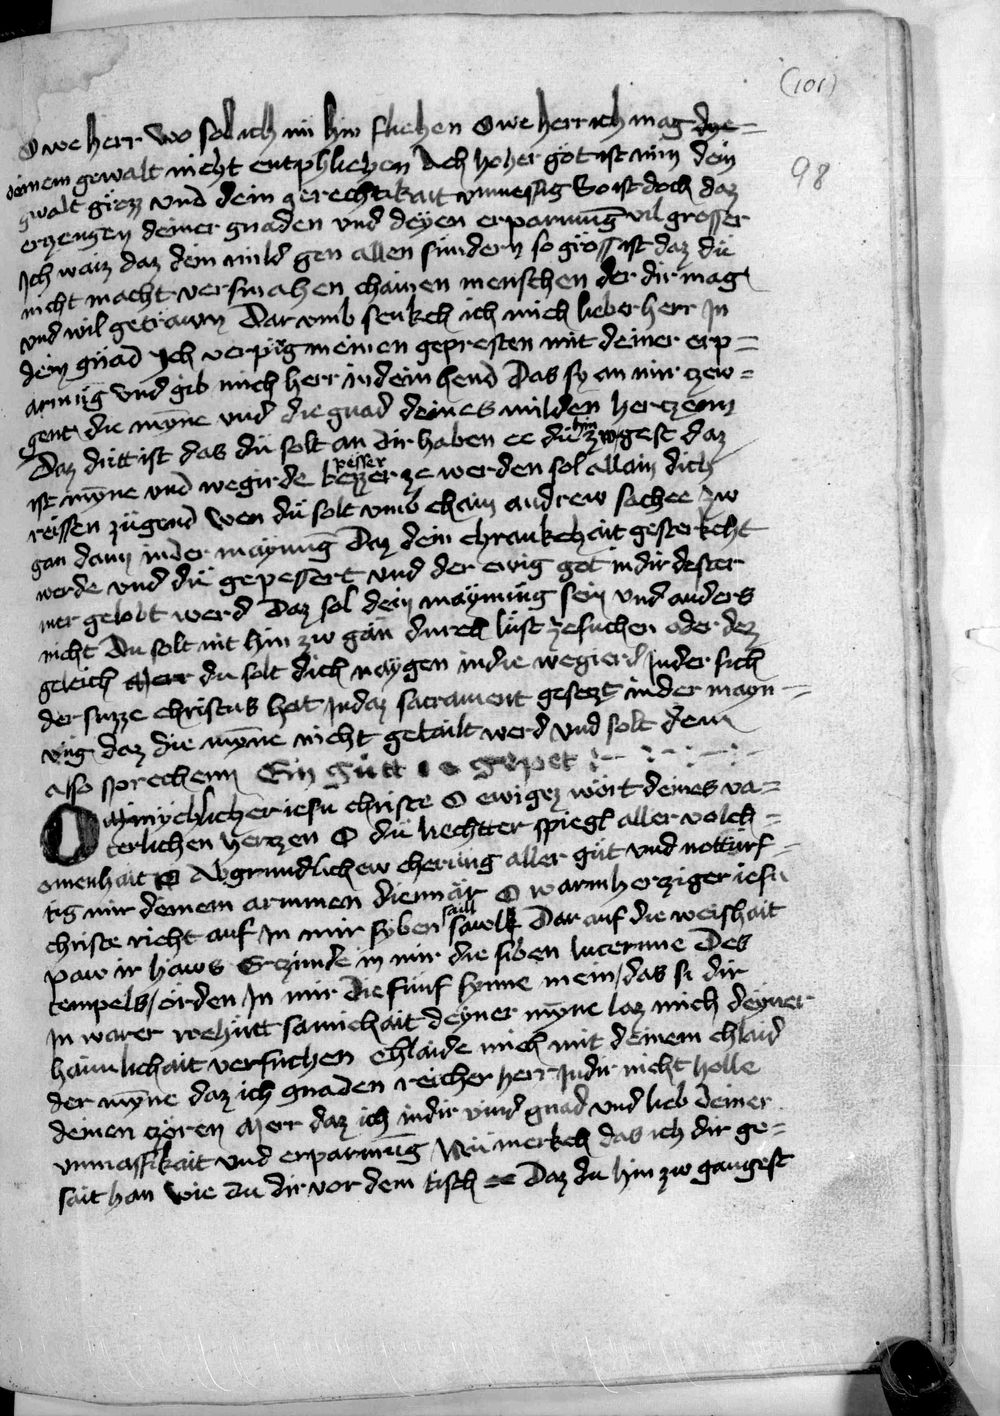 (101)
98
O we herr wo sol ich nü hin fliehen O we herr ich mag dye=
deinem gewalt nicht entphliehen Ach hoher got ist nün dein
gwalt grözz vnd dein gerechtikait vnmessig So ist doch daz
erzeugen deiner gnaden vnd deyen erparmüng vil grosser
Ich waiz daz dein mild gen allen sündern so gross ist daz dü
nicht macht versmahen chainen menschen der dir mag
vnd wil getrawn Dar vmb senkch ich mich lieber herr In
dein gnad Ich verpirg meinen gepresten mit deiner erp=
armüg vnd gib mich herr in dein hend Das sy an mir czew=
gent die myne vnd die gnad deines milden hertzenn
Daz dütt ist das dü solt an dir haben ee dü hin zw gest daz
ist myne vnd wegirde pesser ze werden sol allain dich
reissen zügend wen dü solt vmb chain andrew sachee zw
gan dann in der maynüg Daz dein chrankchait gesterkcht
werde vnd dü gepessert vnd der ewig got in dir dester
mer gelobt werd Daz sol dein maynüng sein vnd anders
nicht Du solt nit hin zw gan durch lüst ze suchen oder dez
geleich Herr du solt dich naygen in die wegierd In der sich
der suzze christus hat In daz sacrament geseczt in der mayn=
vng daz die myne nicht getailt werd vnd solt denn
also sprechenn Ein gütt gepet
O Mynychlicher iesu christe O ewigez wort deines va=
terlichen hertzen O dü liechtter spiegl aller volch=
omenhait O Abgrundlichew cherüng aller güt vnd nottürf=
tig mir deinem armmen diennär O warmherziger iesu
christe richt auf In mir syben saill Dar auf die weishait
paw ir haws Erzünde in mir die siben lucernne Des
tempels / örden In mir die fünf synne mein / das si dir
In warer wehütt samichait deyner myne laz mich deyner
haimlichait versuchen chlaide mich mit deinem chlaid
der myne daz ich gnaden reicher herr In dir nicht holle
deinen czoren Herr daz ich in dir vind gnad vnd lieb deiner
vnmassikait vnd erparmüg Nü merkch das ich dir ge=
sait han wie du dir vor dem tisch ee Daz du hin zw gangest